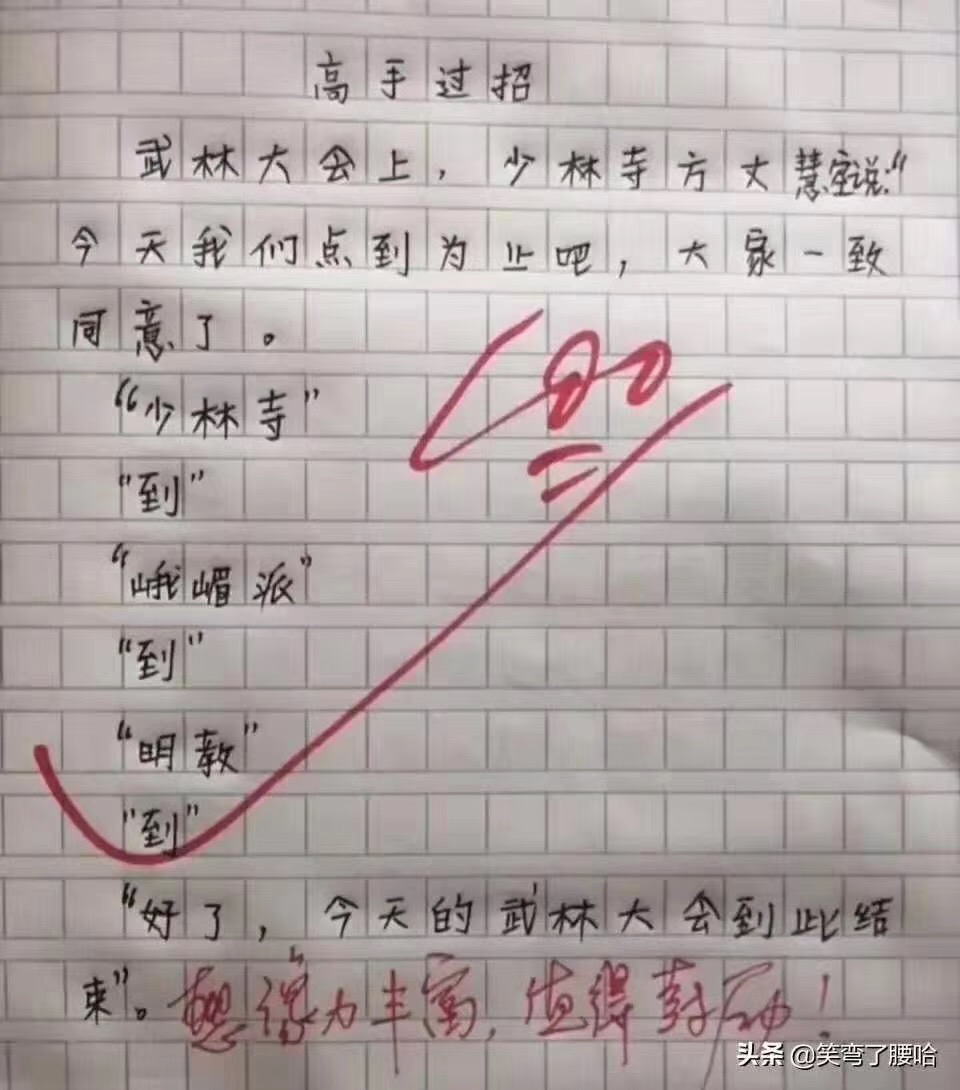 高手过招
武林大会上，少林寺方丈慧空说："
今天我们点到为止吧，大家一致
同意了。
"少林寺"
"到"
"峨嵋派"
"到"
"明教"
"到"
"好了，今天的武林大会到此结
束"。想像力丰富，值得鼓励！
100
头条 @笑弯了腰哈